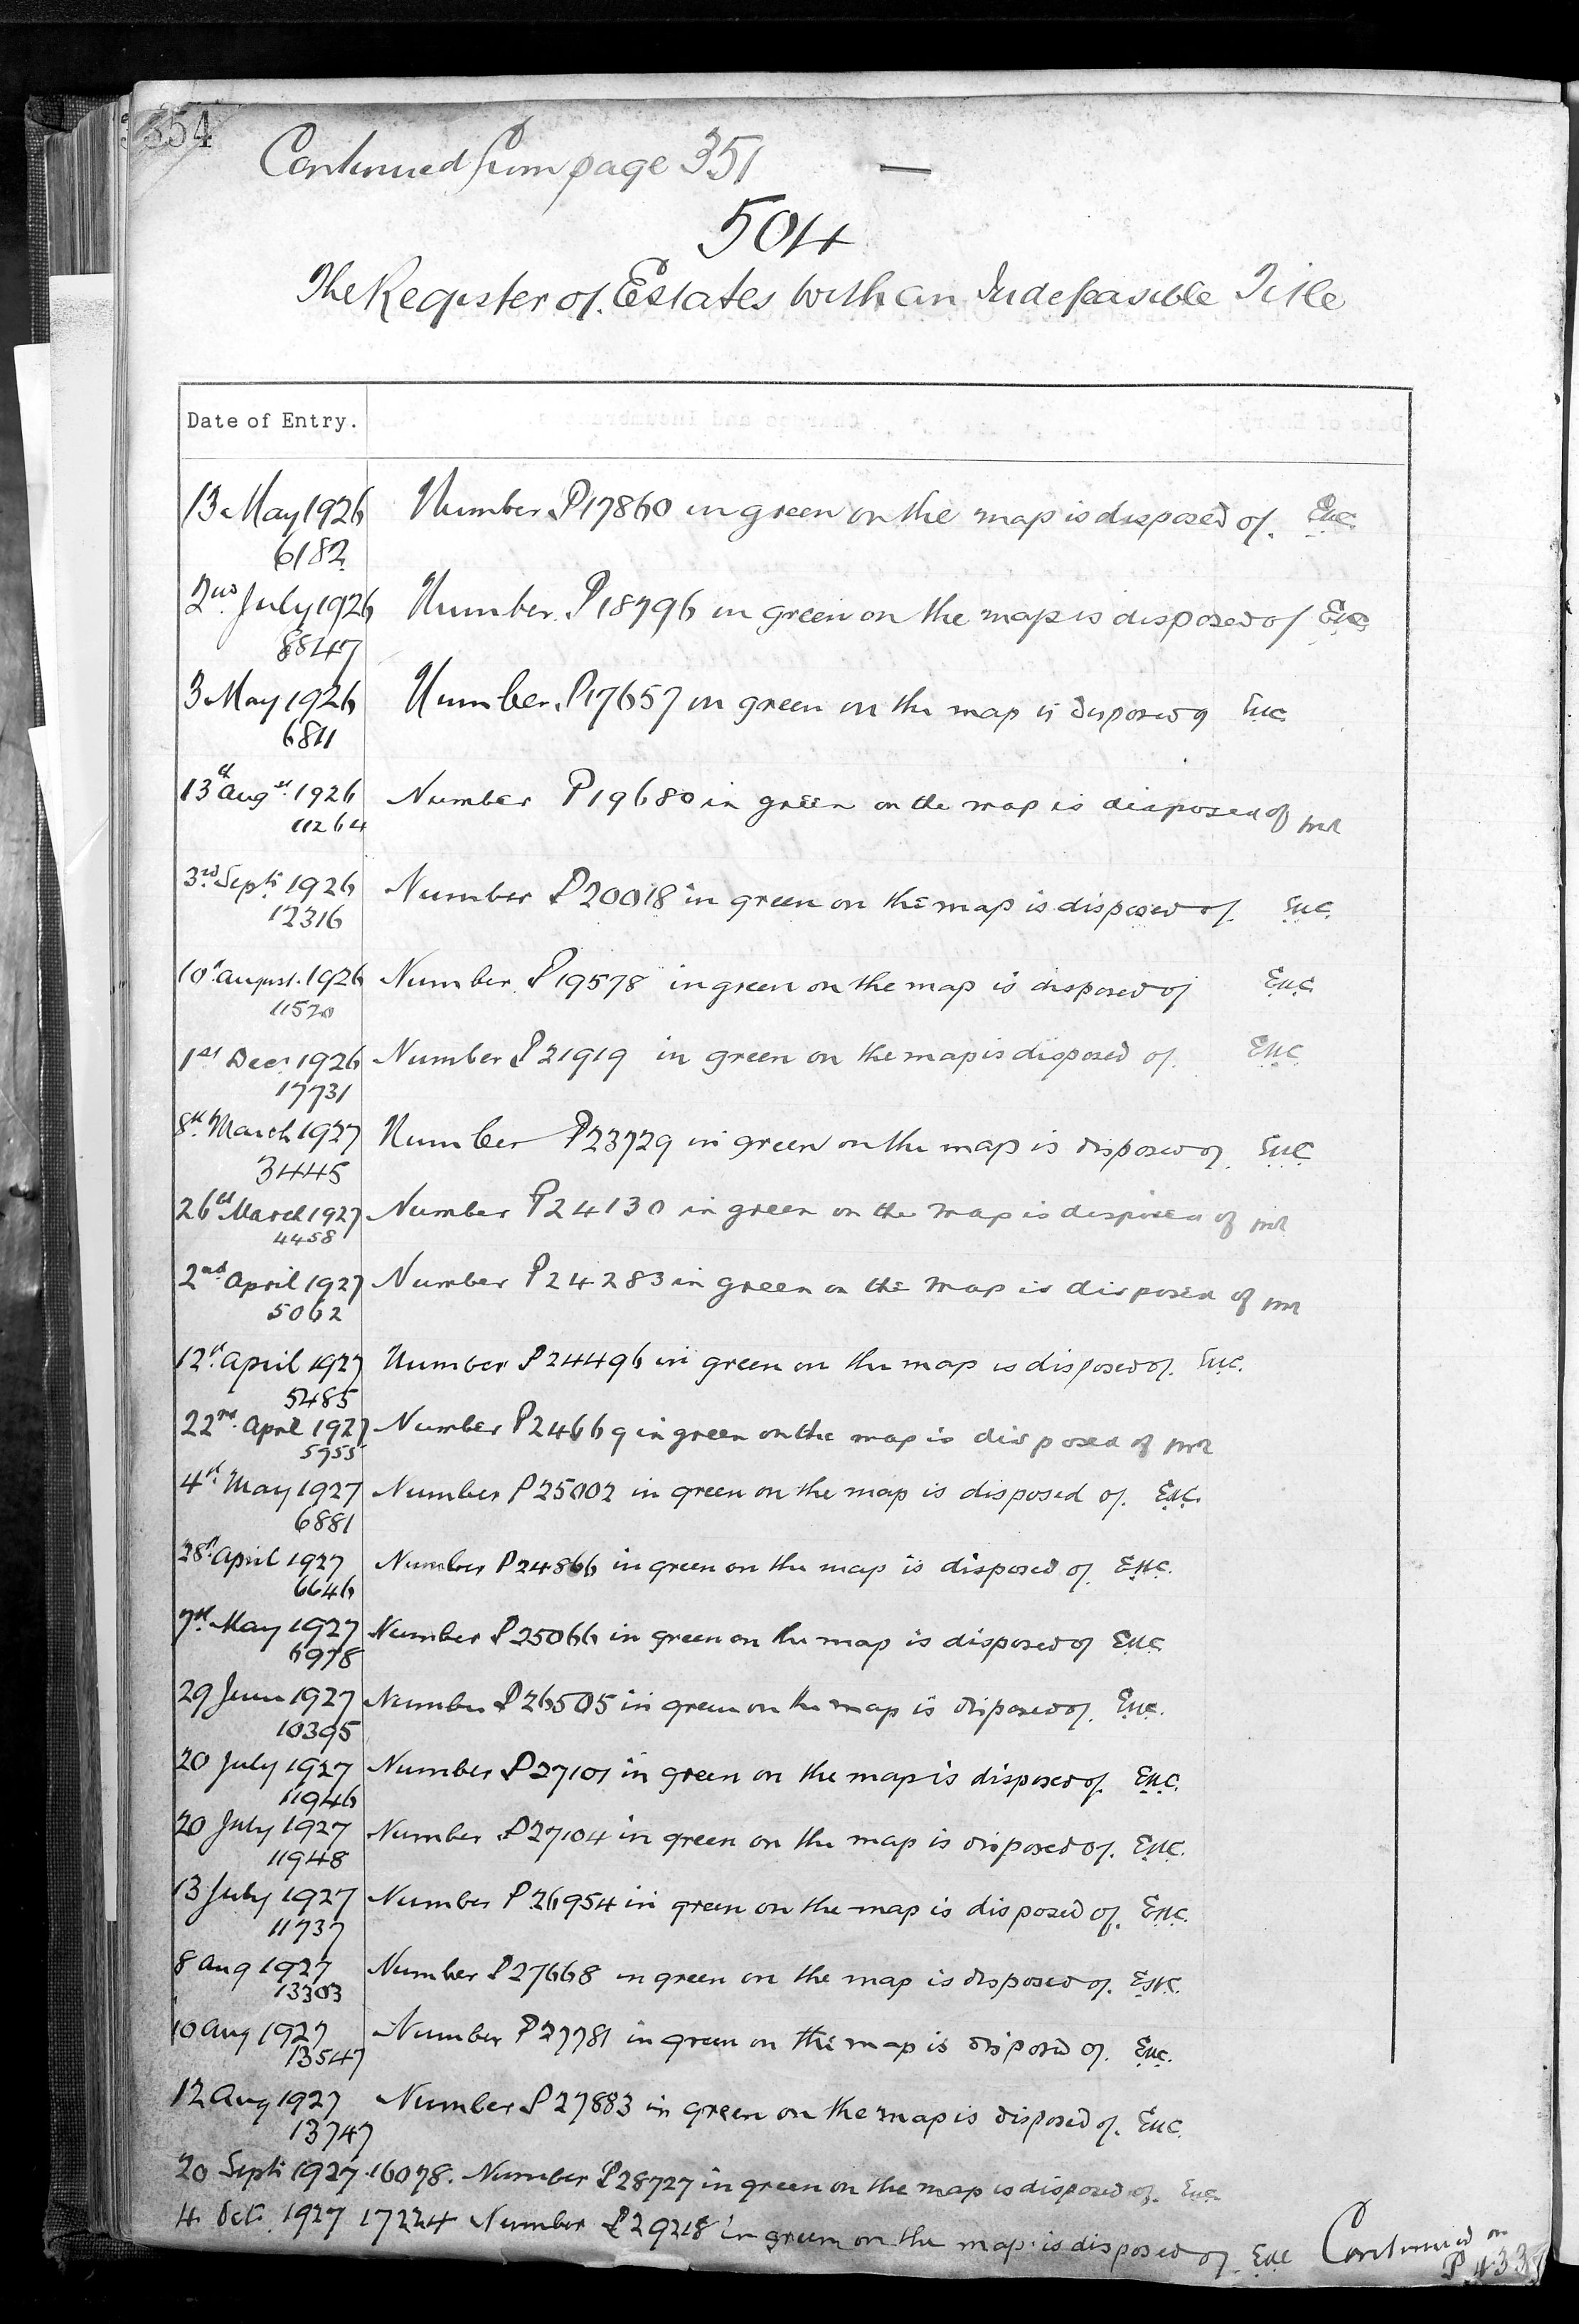 354
Continued from page 351 —
504
The Register of Estates with an Indefeasible Title
Date of Entry.
13 May 1926 Number P17860 in green on the map is disposed of.
6182
2nd July 1926 Number P18796 in green on the map is disposed of
8847
3 May 1926 Number P17657 in green on the map is disposed of
6811
13th Augst 1926 Number P19680 in green on the map is disposed of
11264
3rd Sept 1926 Number P20018 in green on the map is disposed of.
12316
10th August 1926 Number P19578 in green on the map is disposed of
11520
1st Decr 1926 Number P21919 in green on the map is disposed of.
17731
8th March 1927 Number P23729 in green on the map is disposed of.
3445
26th March 1927 Number P24130 in green on the map is disposed of
4458
2nd April 1927 Number P24283 in green on the map is disposed of
5062
12th April 1927 Number P24496 in green on the map is disposed of.
5485
22nd April 1927 Number P24669 in green on the map is disposed of
5955
4th May 1927 Number P25002 in green on the map is disposed of.
6881
28th April 1927 Number P24866 in green on the map is disposed of.
6646
7th May 1927 Number P25066 in green on the map is disposed of
6978
29 June 1927 Number P26505 in green on the map is disposed of.
10395
20 July 1927 Number P27101 in green on the map is disposed of.
11946
20 July 1927 Number P27104 in green on the map is disposed of.
11948
13 July 1927 Number P26954 in green on the map is disposed of.
11737
8 Aug 1927 Number P27668 in green on the map is disposed of.
13303
10 Aug 1927 Number P27781 in green on the map is disposed of.
13547
12 Aug 1927 Number P27883 in green on the map is disposed of.
13747
20 Sept 1927 16078. Number P28727 in green on the map is disposed of.
4 Oct. 1927 17224 Number P29218 in green on the map is disposed of. Continued on
P.